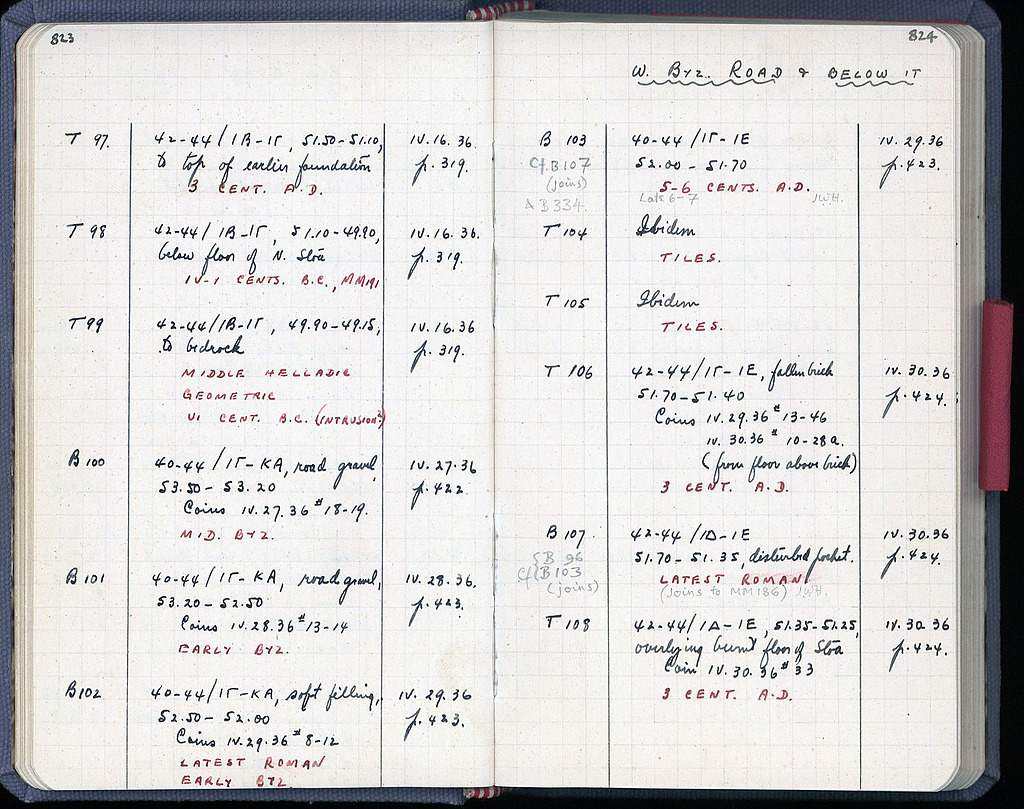 823
T 97. 42-44/ΙΒ-ΙΓ, 51.50-51.10, IV.16.36.
to top of earlier foundation p. 319.
3 CENT. A.D.
T 98 42-44/ΙΒ-ΙΓ, 51.10-49.90, IV.16.36.
below floor of N. Stoa p. 319.
IV-I CENTS. B.C., MM 191
T 99 42-44/ΙΒ-ΙΓ, 49.90-49.15, IV.16.36
to bedrock p. 319.
MIDDLE HELLADIC
GEOMETRIC
VI CENT. B.C. (INTRUSION?)
B 100 40-44/ΙΓ-ΚΑ, road gravel, IV.27.36
53.50-53.20 p. 422
Coins IV.27.36 # 18-19.
MID. BYZ.
B 101 40-44/ΙΓ-ΚΑ, road gravel, IV.28.36.
53.20-52.50 p. 423.
Coins IV.28.36 # 13-14
EARLY BYZ.
B 102 40-44/ΙΓ-ΚΑ, soft filling, IV.29.36
52.50-52.00 p. 423.
Coins IV.29.36 # 8-12
LATEST ROMAN
EARLY BYZ.
824
W. BYZ. ROAD & BELOW IT
B 103 40-44/ΙΓ-ΙΕ IV.29.36
Cf. B107 52.00-51.70 p. 423.
(joins) 5-6 CENTS. A.D.
& B334. Late 6-7 JWH.
T 104 Ibidem
TILES.
T 105 Ibidem
TILES.
T 106 42-44/ΙΓ-ΙΕ, fallen brick IV.30.36
51.70-51.40 p. 424.
Coins IV.29.36 # 13-46
IV.30.36 # 10-28a.
(from floor above brick)
3 CENT. A.D.
B 107 42-44/ΙΔ-ΙΕ IV.30.36
{B 96 51.70-51.35, disturbed pocket. p. 424.
Cf {B103 LATEST ROMAN
(joins) (Joins to MM186) JWH.
T 108 42-44/ΙΔ-ΙΕ, 51.35-51.25, IV.30.36
overlying burnt floor of Stoa p. 424.
Coin IV.30.36 # 33
3 CENT. A.D.